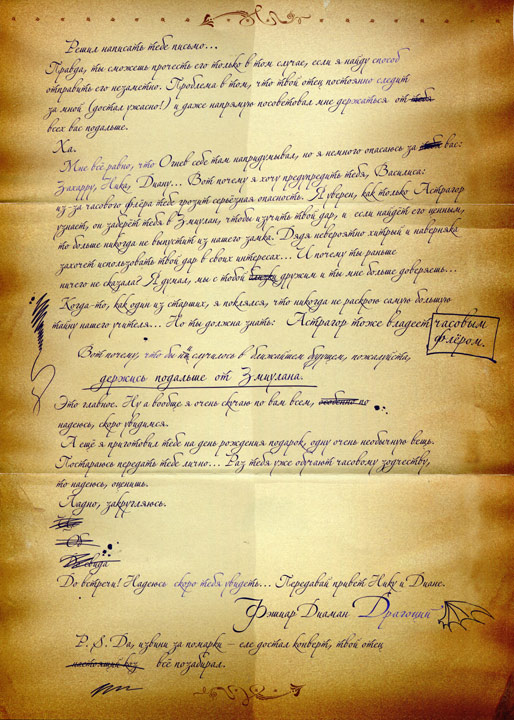 Решил написать тебе письмо...
Правда, ты сможешь прочесть его только в том случае, если я найду способ
отправить его незаметно. Проблема в том, что твой отец постоянно следит
за мной (достал ужасно!) и даже напрямую посоветовал мне держаться от тебя
всех вас подальше.
Ха.
Мне всё равно, что Огнев себе там напридумывал, но я немного опасаюсь за вас:
Захарру, Ника, Диану... Вот почему я хочу предупредить тебя, Василиса:
из-за часового флёра тебе грозит серьёзная опасность. Я уверен, как только Астрагор
узнает, он заберёт тебя в Змиулан, чтобы изучить твой дар, и если найдёт его ценным,
то больше никогда не выпустит из нашего замка. Дядя невероятно хитрый и наверняка
захочет использовать твой дар в своих интересах... И почему ты раньше
ничего не сказала? Я думал, мы с тобой близко дружим и ты мне больше доверяешь...
Когда-то, как один из старших, я поклялся, что никогда не раскрою самую большую
тайну нашего учителя... Но ты должна знать: Астрагор тоже владеет часовым
флёром.
Вот почему, что бы ни случилось в ближайшем будущем, пожалуйста,
держись подальше от Змиулана.
Это главное. Ну а вообще я очень скучаю по вам всем, особенно по
надеюсь, скоро увидимся.
А ещё я приготовил тебе на день рождения подарок, одну очень необычную вещь.
Постараюсь передать тебе лично... Раз тебя уже обучают часовому зодчеству,
то надеюсь, оценишь.
Ладно, закругляюсь.
До встречи! Надеюсь скоро тебя увидеть... Передавай привет Нику и Диане.
Фэшиар Диаман Драгоций
P. S. Да, извини за помарки – еле достал конверт, твой отец
настоящий коз всё позабирал.